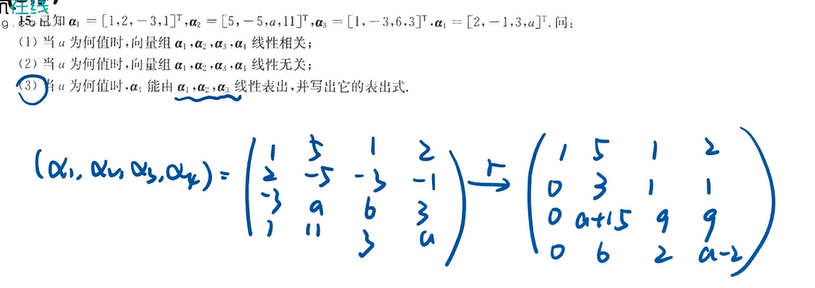 在线
15. 已知 α₁ = [1,2,-3,1]ᵀ, α₂ = [5,-5,a,11]ᵀ, α₃ = [1,-3,6,3]ᵀ, α₄ = [2,-1,3,a]ᵀ. 问:
(1) 当 a 为何值时,向量组 α₁,α₂,α₃,α₄ 线性相关;
(2) 当 a 为何值时,向量组 α₁,α₂,α₃,α₄ 线性无关;
(3) 当 a 为何值时,α₄ 能由 α₁,α₂,α₃ 线性表出,并写出它的表出式.
(α₁, α₂, α₃, α₄) = r
1 5 1 2
2 -5 -3 -1
-3 a 6 3
1 11 3 a
1 5 1 2
0 3 1 1
0 a+15 9 9
0 6 2 a-2